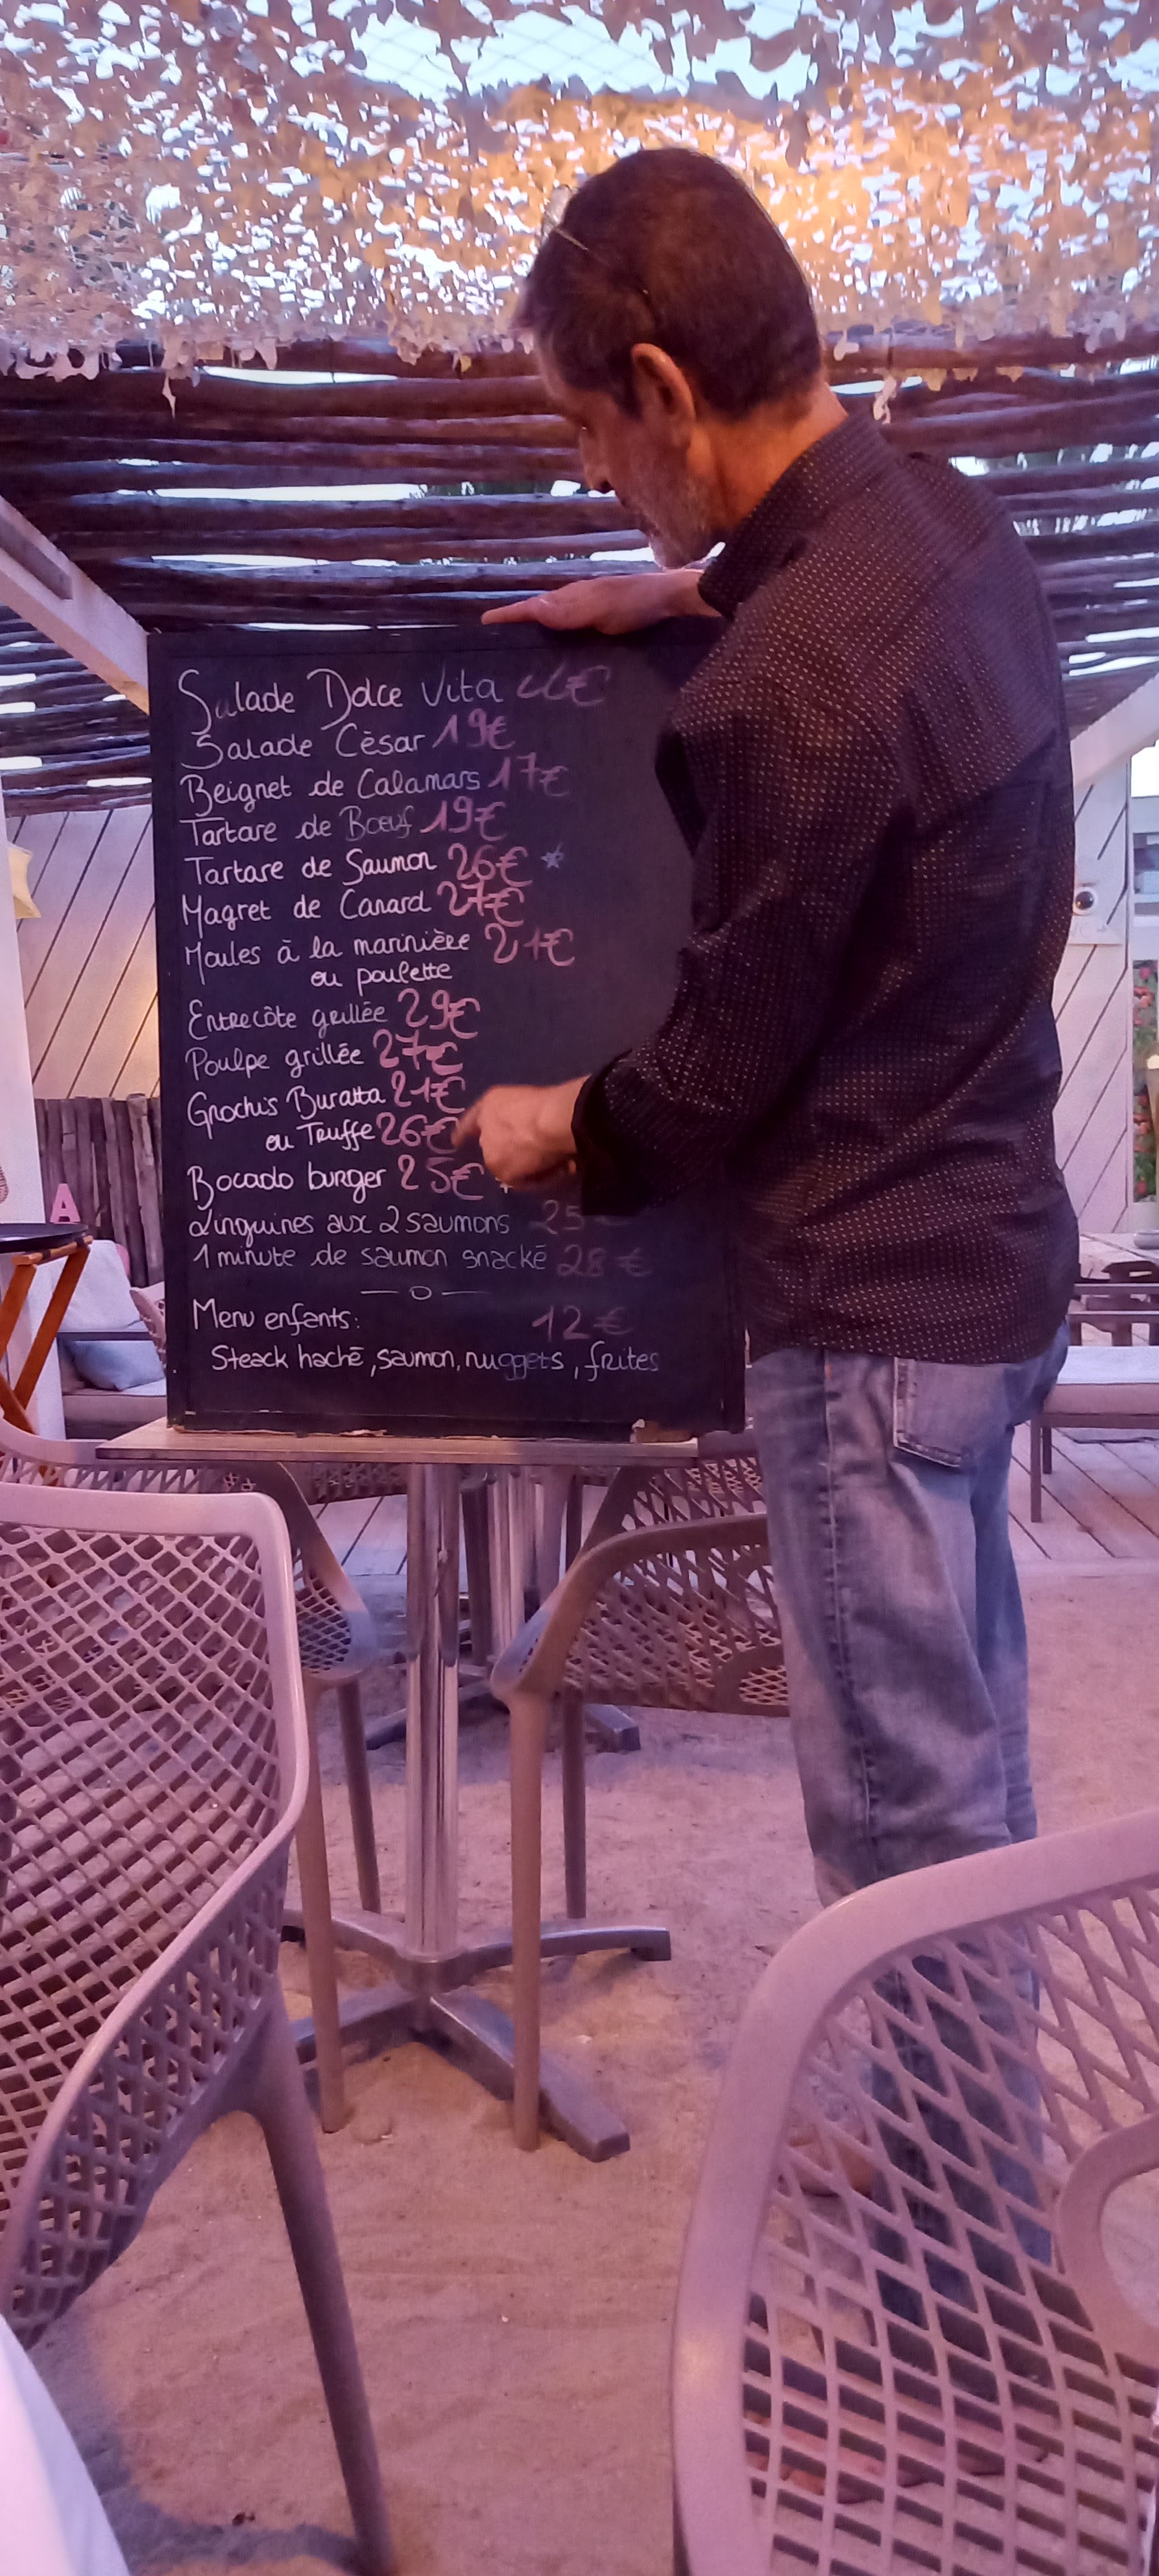 Salade Dolce Vita
Salade Cèsar 19€
Beignet de Calamars 17€
Tartare de Bœuf 19€
Tartare de Saumon 26€ *
Magret de Canard 27€
Moules à la marinière 21€
ou poulette
Entrecôte grillée 29€
Poulpe grillée 27€
Gnochis Buratta 21€
ou Truffe 26€
Bocado burger 25€
Linguines aux 2 saumons 25€
1 minute de saumon snacké 28€
Menu enfants: 12€
Steack haché, saumon, nuggets, frites
A